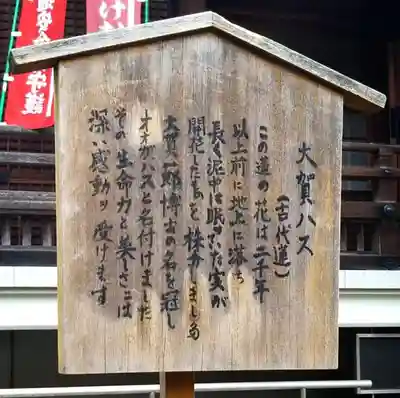 大賀ハス
(古代蓮)
この蓮の花は二千年
以上前に地上に落ち
長く泥中に眠っていた実が
開花したものを株分けしました
大賀一郎博士の名を冠し
オオガハスと名付けました
その生命力と美しさには
深い感動を受けます
守護